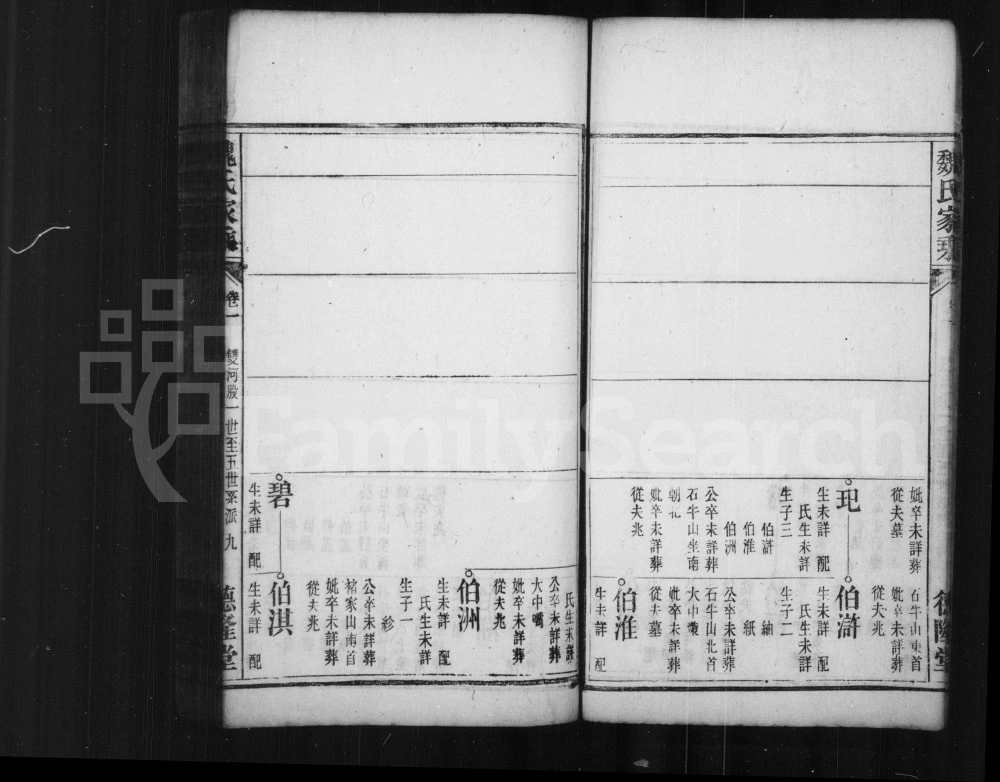 魏氏家
妣卒未詳葬
從夫墓
玘
生未詳 配
氏生未詳
生子三
伯滸
伯淮
伯洲
公卒未詳葬
石牛山坐南
朝北
妣卒未詳葬
從夫兆
石牛山東首
妣卒未詳葬
從夫兆
伯滸
生未詳 配
氏生未詳
生子二
紬
紙
公卒未詳葬
石牛山北首
大中
妣卒未詳葬
從夫墓
伯淮
生未詳 配
德隆堂
氏生未詳
公卒未詳葬
大中嘴
妣卒未詳葬
從夫兆
伯洲
生未詳 配
氏生未詳
生子一
公卒未詳葬
褚家山南首
妣卒未詳葬
從夫兆
碧
生未詳 配
伯淇
生未詳 配
魏氏家
卷一 雙河股一世至五世系派 九
德隆堂
FamilySearch